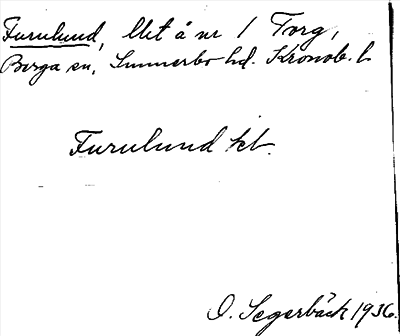 Furulund, lht å nr 1 Torg,
Berga sn, Sunnerbo hd. Kronob. l.
Furulund kt.
O. Segerbäck 1936.